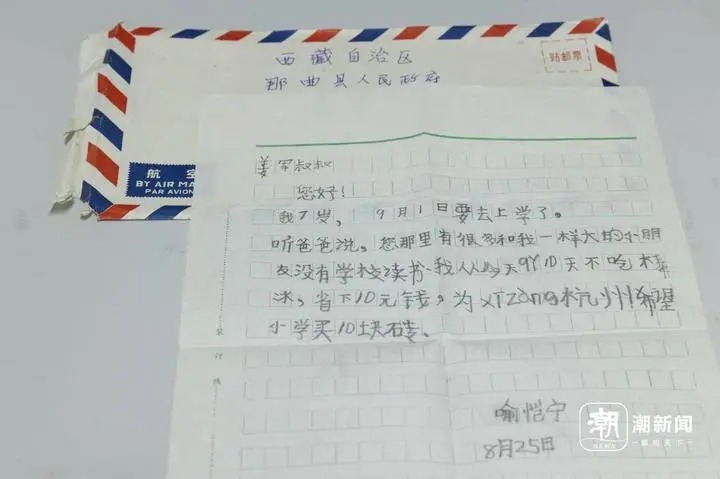 西藏自治区
那曲县人民政府
贴邮票
航空
BY AIR MA
PAR AVION
姜军叔叔
您好！
我7岁，9月1日要去上学了。
听爸爸说。您那里有很多和我一样大的小朋
友没有学校读书.我从今天qi10天不吃棒
冰，省下10元钱，为xizang杭州希望
小学买10块砖、
喻恺宁
8月25日
装订线
潮
NEWS
潮新闻